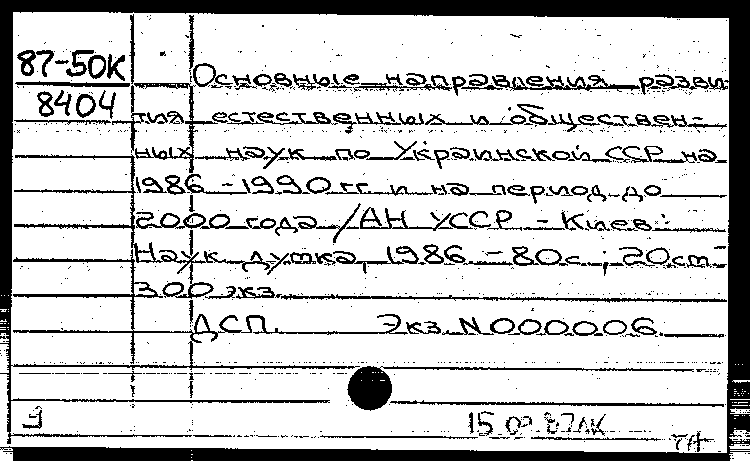 87-50К
8404
Основные направления разви-
тия естественных и обществен-
ных наук по Украинской ССР на
1986 - 1990 гг. и на период до
2000 года / АН УССР - Киев:
Наук. думка, 1986. - 80с.; 20см -
300 экз.
ДСП. Экз. N 000006.
9
15 87ЛК